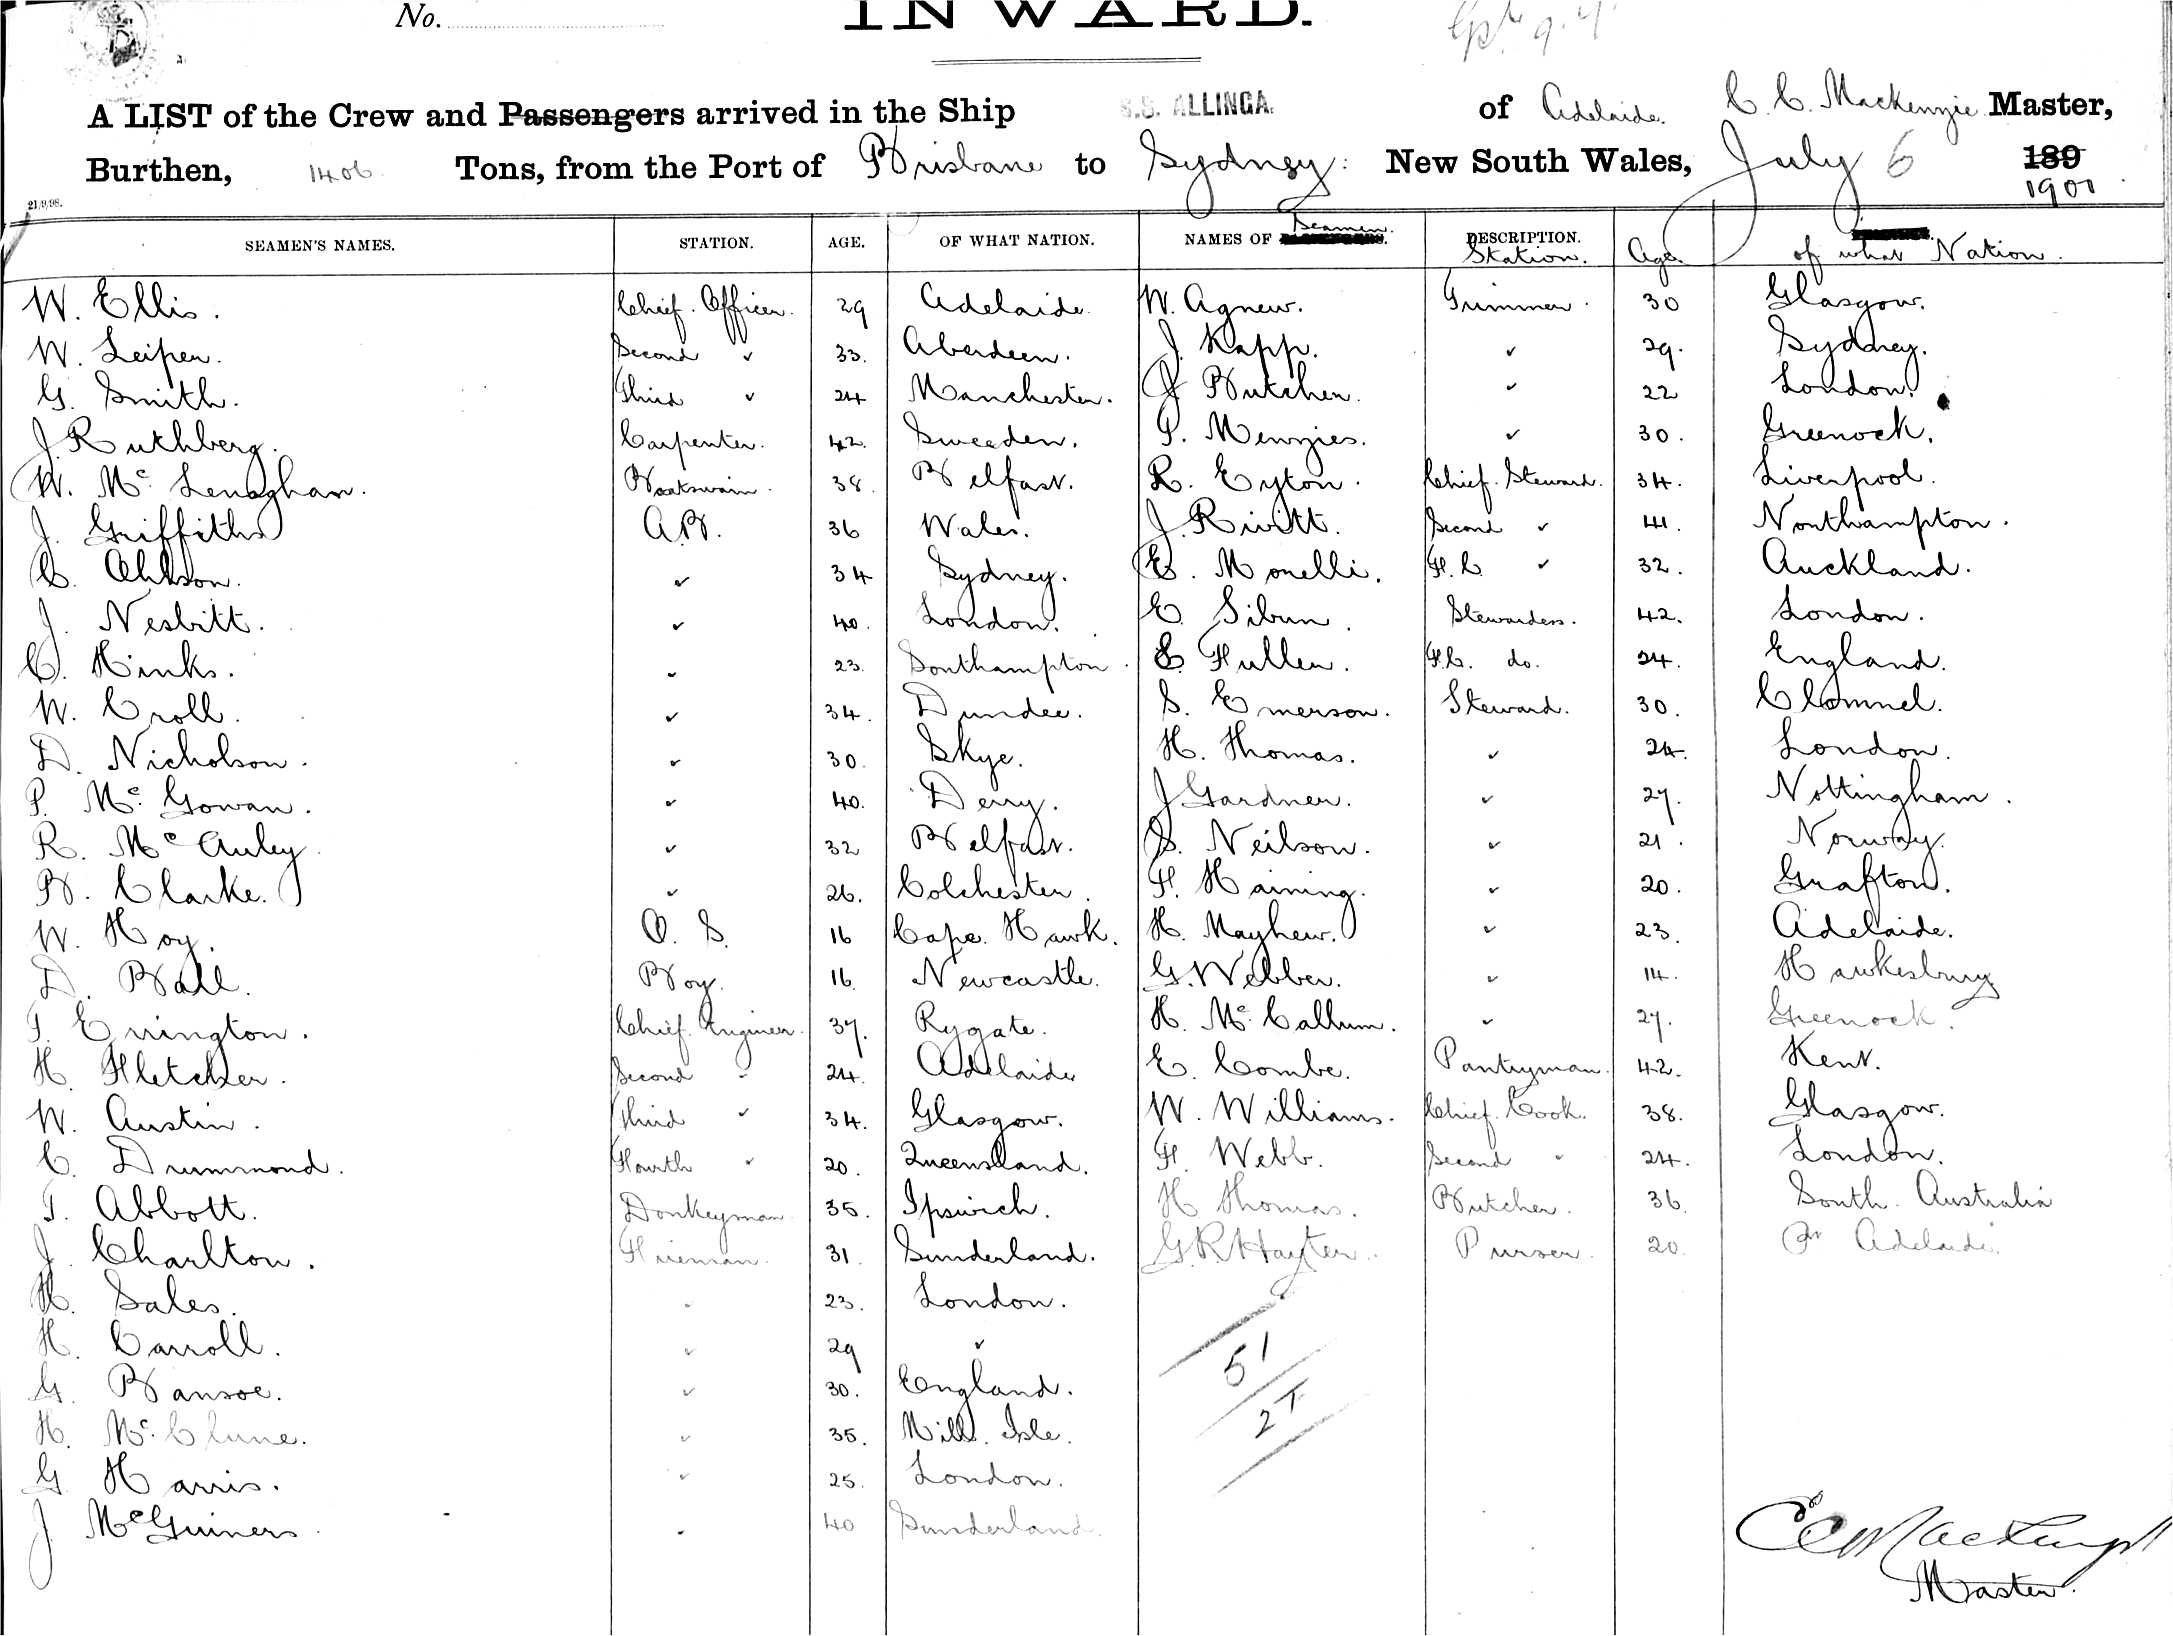 No.
INWARD.
A LIST of the Crew and Passengers arrived in the Ship S.S. ALLINGA. of Adelaide. C. C. Mackenzie Master,
Burthen, 1406 Tons, from the Port of Brisbane to Sydney: New South Wales, July 6 189
1901
21/9/98.
Seamen.
SEAMEN'S NAMES. STATION. AGE. OF WHAT NATION. NAMES OF DESCRIPTION.
Station. Age. of what Nation.
W. Ellis. Chief. Officer. 29 Adelaide W. Agnew. Trimmer. 30 Glasgow.
W. Leiper. Second ✓ 33. Aberdeen. J. Kapp. ✓ 29. Sydney.
G. Smith. Third ✓ 24 Manchester. J Butcher. ✓ 22 London.
J. Ruthberg. Carpenter. 42. Sweeden. P. Menzies. ✓ 30. Greenock.
W. Mc Lenaghan. Boatswain. 38. Belfast. R. Eyton. Chief. Steward. 34. Liverpool.
J. Griffiths A.B. 36 Wales. J. Rivitt. Second ✓ 41. Northampton.
C. Ohlson. ✓ 34 Sydney. E. Monelli. F.C. ✓ 32. Auckland.
J. Nesbitt. ✓ 40. London. E. Sibun. Stewardess. 42. London.
C. Hinks. ✓ 23. Southampton. E. Fullen. F.C. do. 24. England.
W. Croll. ✓ 34. Dundee. S. Emerson. Steward. 30. Clommel.
D. Nicholson. ✓ 30. Skye. H. Thomas. ✓ 24. London.
P. Mc. Gowan. ✓ 40. Derry. J Gardner. ✓ 27. Nottingham.
R. Mc Auley ✓ 32 Belfast. S. Neilson. ✓ 21. Norway.
B. Clarke. ✓ 26. Colchester. F. Haining. ✓ 20. Grafton.
W. Hoy. O. S. 16 Cape. Hawk. H. Mayhew. ✓ 23. Adelaide.
D. Ball. Boy. 16. Newcastle. G. Webber. ✓ 14. Hawkesbury
T. Errington. Chief. Engineer. 37. Rygate. H. Mc. Callum. ✓ 27. Greenock.
H. Fletcher. Second ✓ 24. Adelaide E. Combe. Pantryman. 42. Kent.
W. Austin. Third ✓ 34. Glasgow. W. Williams. Chief. Cook. 38. Glasgow.
C. Drummond. Fourth ✓ 20. Queensland. F. Webb. Second ✓ 24. London.
T. Abbott. Donkeyman 35. Ipswich. H Thomas. Butcher. 36. South. Australia
J. Charlton. Fireman. 31. Sunderland. G. R. Hayter. Purser. 20. Pt Adelaide.
H. Sales. ✓ 23. London.
H. Carroll. ✓ 29 ✓
G. Bansoe. ✓ 30. England.
H. Mc. Clune. ✓ 35. Mill. Isle.
G Harris. ✓ 25. London.
J McGuiners ✓ 40 Sunderland.
51
27
C C Mackenzie
Master.